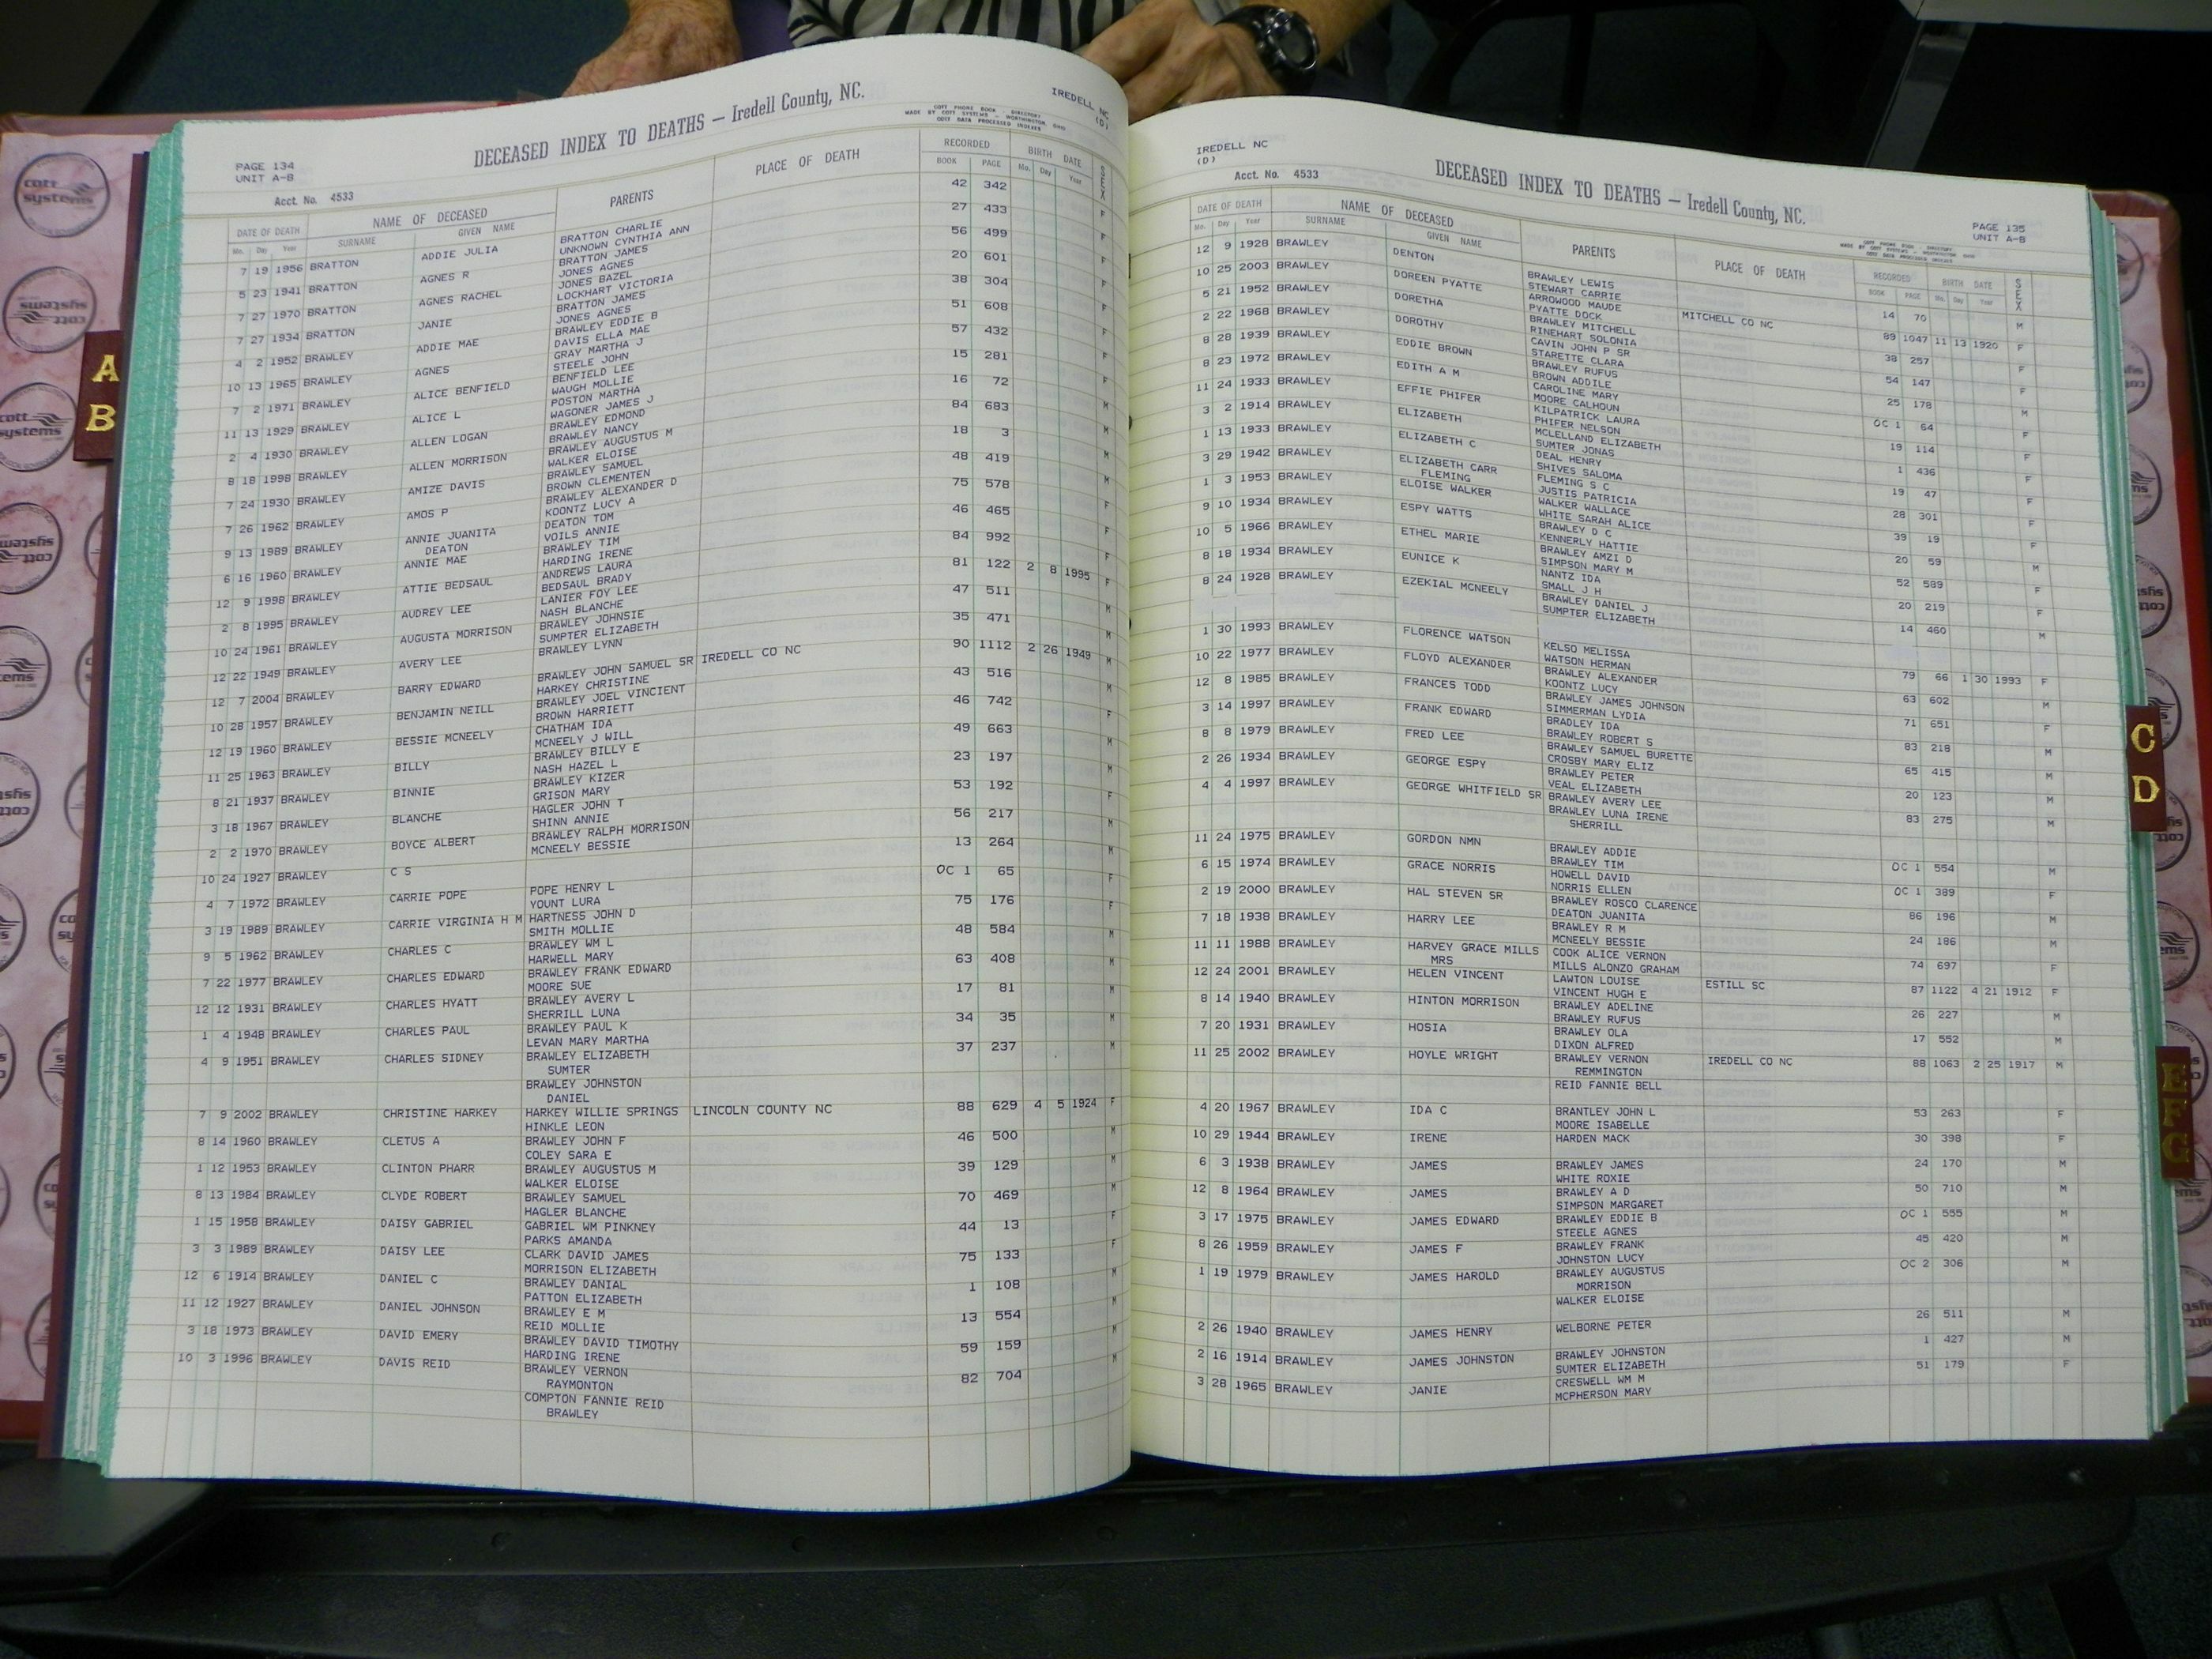 DECEASED INDEX TO DEATHS — Iredell County, NC.
IREDELL NC
(D)
COTT PHONE BOOK - DIRECTORY
MADE BY COTT SYSTEMS - WORTHINGTON, OHIO
COTT DATA PROCESSED INDEXES
PAGE 134
UNIT A-B
Acct. No. 4533
DATE OF DEATH NAME OF DECEASED PARENTS PLACE OF DEATH RECORDED BIRTH DATE SEX
Mo. Day Year SURNAME GIVEN NAME BOOK PAGE Mo. Day Year
7 19 1956 BRATTON ADDIE JULIA BRATTON CHARLIE 42 342 F
UNKNOWN CYNTHIA ANN
5 23 1941 BRATTON AGNES R BRATTON JAMES 27 433 F
JONES AGNES
7 27 1970 BRATTON AGNES RACHEL JONES BAZEL 56 499 F
LOCKHART VICTORIA
7 27 1934 BRATTON JANIE BRATTON JAMES 20 601 F
JONES AGNES
4 2 1952 BRAWLEY ADDIE MAE BRAWLEY EDDIE B 38 304 F
DAVIS ELLA MAE
10 13 1965 BRAWLEY AGNES GRAY MARTHA J 51 608 F
STEELE JOHN
7 2 1971 BRAWLEY ALICE BENFIELD BENFIELD LEE 57 432 F
WAUGH MOLLIE
11 13 1929 BRAWLEY ALICE L POSTON MARTHA 15 281 F
WAGONER JAMES J
2 4 1930 BRAWLEY ALLEN LOGAN BRAWLEY EDMOND 16 72 M
BRAWLEY NANCY
8 18 1998 BRAWLEY ALLEN MORRISON BRAWLEY AUGUSTUS M 84 683 M
WALKER ELOISE
7 24 1930 BRAWLEY AMIZE DAVIS BRAWLEY SAMUEL 18 3 M
BROWN CLEMENTEN
7 26 1962 BRAWLEY AMOS P BRAWLEY ALEXANDER D 48 419 M
KOONTZ LUCY A
9 13 1989 BRAWLEY ANNIE JUANITA DEATON TOM 75 578 F
DEATON VOILS ANNIE
6 16 1960 BRAWLEY ANNIE MAE BRAWLEY TIM 46 465 F
HARDING IRENE
12 9 1998 BRAWLEY ATTIE BEDSAUL ANDREWS LAURA 84 992 F
BEDSAUL BRADY
2 8 1995 BRAWLEY AUDREY LEE LANIER FOY LEE 81 122 2 8 1995 F
NASH BLANCHE
10 24 1961 BRAWLEY AUGUSTA MORRISON BRAWLEY JOHNSIE 47 511 M
SUMPTER ELIZABETH
12 22 1949 BRAWLEY AVERY LEE BRAWLEY LYNN 35 471 M
12 7 2004 BRAWLEY BARRY EDWARD BRAWLEY JOHN SAMUEL SR IREDELL CO NC 90 1112 2 26 1949 M
HARKEY CHRISTINE
10 28 1957 BRAWLEY BENJAMIN NEILL BRAWLEY JOEL VINCIENT 43 516 M
BROWN HARRIETT
12 19 1960 BRAWLEY BESSIE MCNEELY CHATHAM IDA 46 742 F
MCNEELY J WILL
11 25 1963 BRAWLEY BILLY BRAWLEY BILLY E 49 663 M
NASH HAZEL L
8 21 1937 BRAWLEY BINNIE BRAWLEY KIZER 23 197 M
GRISON MARY
3 18 1967 BRAWLEY BLANCHE HAGLER JOHN T 53 192 F
SHINN ANNIE
2 2 1970 BRAWLEY BOYCE ALBERT BRAWLEY RALPH MORRISON 56 217 M
MCNEELY BESSIE
10 24 1927 BRAWLEY C S 13 264 M
4 7 1972 BRAWLEY CARRIE POPE POPE HENRY L OC 1 65 F
YOUNT LURA
3 19 1989 BRAWLEY CARRIE VIRGINIA H M HARTNESS JOHN D 75 176 F
SMITH MOLLIE
9 5 1962 BRAWLEY CHARLES C BRAWLEY WM L 48 584 M
HARWELL MARY
7 22 1977 BRAWLEY CHARLES EDWARD BRAWLEY FRANK EDWARD 63 408 M
MOORE SUE
12 12 1931 BRAWLEY CHARLES HYATT BRAWLEY AVERY L 17 81 M
SHERRILL LUNA
1 4 1948 BRAWLEY CHARLES PAUL BRAWLEY PAUL K 34 35 M
LEVAN MARY MARTHA
4 9 1951 BRAWLEY CHARLES SIDNEY BRAWLEY ELIZABETH 37 237 M
SUMTER
BRAWLEY JOHNSTON
DANIEL
7 9 2002 BRAWLEY CHRISTINE HARKEY HARKEY WILLIE SPRINGS LINCOLN COUNTY NC 88 629 4 5 1924 F
HINKLE LEON
8 14 1960 BRAWLEY CLETUS A BRAWLEY JOHN F 46 500 M
COLEY SARA E
1 12 1953 BRAWLEY CLINTON PHARR BRAWLEY AUGUSTUS M 39 129 M
WALKER ELOISE
8 13 1984 BRAWLEY CLYDE ROBERT BRAWLEY SAMUEL 70 469 M
HAGLER BLANCHE
1 15 1958 BRAWLEY DAISY GABRIEL GABRIEL WM PINKNEY 44 13 F
PARKS AMANDA
3 3 1989 BRAWLEY DAISY LEE CLARK DAVID JAMES 75 133 F
MORRISON ELIZABETH
12 6 1914 BRAWLEY DANIEL C BRAWLEY DANIAL 1 108 M
PATTON ELIZABETH
11 12 1927 BRAWLEY DANIEL JOHNSON BRAWLEY E M 13 554 M
REID MOLLIE
3 18 1973 BRAWLEY DAVID EMERY BRAWLEY DAVID TIMOTHY 59 159 M
HARDING IRENE
10 3 1996 BRAWLEY DAVIS REID BRAWLEY VERNON 82 704 M
RAYMONTON
COMPTON FANNIE REID
BRAWLEY
IREDELL NC
(D)
Acct. No. 4533
DECEASED INDEX TO DEATHS — Iredell County, NC.
PAGE 135
UNIT A-B
COTT PHONE BOOK - DIRECTORY
MADE BY COTT SYSTEMS - WORTHINGTON, OHIO
COTT DATA PROCESSED INDEXES
DATE OF DEATH NAME OF DECEASED PARENTS PLACE OF DEATH RECORDED BIRTH DATE SEX
Mo. Day Year SURNAME GIVEN NAME BOOK PAGE Mo. Day Year
12 9 1928 BRAWLEY DENTON BRAWLEY LEWIS 14 70 M
STEWART CARRIE
10 25 2003 BRAWLEY DOREEN PYATTE ARROWOOD MAUDE MITCHELL CO NC 89 1047 11 13 1920 F
PYATTE DOCK
5 21 1952 BRAWLEY DORETHA BRAWLEY MITCHELL 38 257 F
RINEHART SOLONIA
2 22 1968 BRAWLEY DOROTHY CAVIN JOHN P SR 54 147 F
STARETTE CLARA
8 28 1939 BRAWLEY EDDIE BROWN BRAWLEY RUFUS 25 178 M
BROWN ADDILE
8 23 1972 BRAWLEY EDITH A M CAROLINE MARY OC 1 64 F
MOORE CALHOUN
11 24 1933 BRAWLEY EFFIE PHIFER KILPATRICK LAURA 19 114 F
PHIFER NELSON
3 2 1914 BRAWLEY ELIZABETH MCLELLAND ELIZABETH 1 436 F
SUMTER JONAS
1 13 1933 BRAWLEY ELIZABETH C DEAL HENRY 19 47 F
SHIVES SALOMA
3 29 1942 BRAWLEY ELIZABETH CARR FLEMING S C 28 301 F
FLEMING JUSTIS PATRICIA
1 3 1953 BRAWLEY ELOISE WALKER WALKER WALLACE 39 19 F
WHITE SARAH ALICE
9 10 1934 BRAWLEY ESPY WATTS BRAWLEY D C 20 59 M
KENNERLY HATTIE
10 5 1966 BRAWLEY ETHEL MARIE BRAWLEY AMZI D 52 589 F
SIMPSON MARY M
8 18 1934 BRAWLEY EUNICE K NANTZ IDA 20 219 F
SMALL J H
8 24 1928 BRAWLEY EZEKIAL MCNEELY BRAWLEY DANIEL J 14 460 M
SUMPTER ELIZABETH
1 30 1993 BRAWLEY FLORENCE WATSON KELSO MELISSA 79 66 1 30 1993 F
WATSON HERMAN
10 22 1977 BRAWLEY FLOYD ALEXANDER BRAWLEY ALEXANDER 63 602 M
KOONTZ LUCY
12 8 1985 BRAWLEY FRANCES TODD BRAWLEY JAMES JOHNSON 71 651 F
SIMMERMAN LYDIA
3 14 1997 BRAWLEY FRANK EDWARD BRADLEY IDA 83 218 M
BRAWLEY ROBERT S
8 8 1979 BRAWLEY FRED LEE BRAWLEY SAMUEL BURETTE 65 415 M
CROSBY MARY ELIZ
2 26 1934 BRAWLEY GEORGE ESPY BRAWLEY PETER 20 123 M
VEAL ELIZABETH
4 4 1997 BRAWLEY GEORGE WHITFIELD SR BRAWLEY AVERY LEE 83 275 M
BRAWLEY LUNA IRENE
SHERRILL
11 24 1975 BRAWLEY GORDON NMN BRAWLEY ADDIE OC 1 554 M
BRAWLEY TIM
6 15 1974 BRAWLEY GRACE NORRIS HOWELL DAVID OC 1 389 F
NORRIS ELLEN
2 19 2000 BRAWLEY HAL STEVEN SR BRAWLEY ROSCO CLARENCE 86 196 M
DEATON JUANITA
7 18 1938 BRAWLEY HARRY LEE BRAWLEY R M 24 186 M
MCNEELY BESSIE
11 11 1988 BRAWLEY HARVEY GRACE MILLS COOK ALICE VERNON 74 697 F
MRS MILLS ALONZO GRAHAM
12 24 2001 BRAWLEY HELEN VINCENT LAWTON LOUISE ESTILL SC 87 1122 4 21 1912 F
VINCENT HUGH E
8 14 1940 BRAWLEY HINTON MORRISON BRAWLEY ADELINE 26 227 M
BRAWLEY RUFUS
7 20 1931 BRAWLEY HOSIA BRAWLEY OLA 17 552 M
DIXON ALFRED
11 25 2002 BRAWLEY HOYLE WRIGHT BRAWLEY VERNON IREDELL CO NC 88 1063 2 25 1917 M
REMMINGTON
REID FANNIE BELL
4 20 1967 BRAWLEY IDA C BRANTLEY JOHN L 53 263 F
MOORE ISABELLE
10 29 1944 BRAWLEY IRENE HARDEN MACK 30 398 F
6 3 1938 BRAWLEY JAMES BRAWLEY JAMES 24 170 M
WHITE ROXIE
12 8 1964 BRAWLEY JAMES BRAWLEY A D 50 710 M
SIMPSON MARGARET
3 17 1975 BRAWLEY JAMES EDWARD BRAWLEY EDDIE B OC 1 555 M
STEELE AGNES
8 26 1959 BRAWLEY JAMES F BRAWLEY FRANK 45 420 M
JOHNSTON LUCY
1 19 1979 BRAWLEY JAMES HAROLD BRAWLEY AUGUSTUS OC 2 306 M
MORRISON
WALKER ELOISE
2 26 1940 BRAWLEY JAMES HENRY WELBORNE PETER 26 511 M
2 16 1914 BRAWLEY JAMES JOHNSTON BRAWLEY JOHNSTON 1 427 M
SUMTER ELIZABETH
3 28 1965 BRAWLEY JANIE CRESWELL WM M 51 179 F
MCPHERSON MARY
A
B
C
D
E
F
G
cott
systems